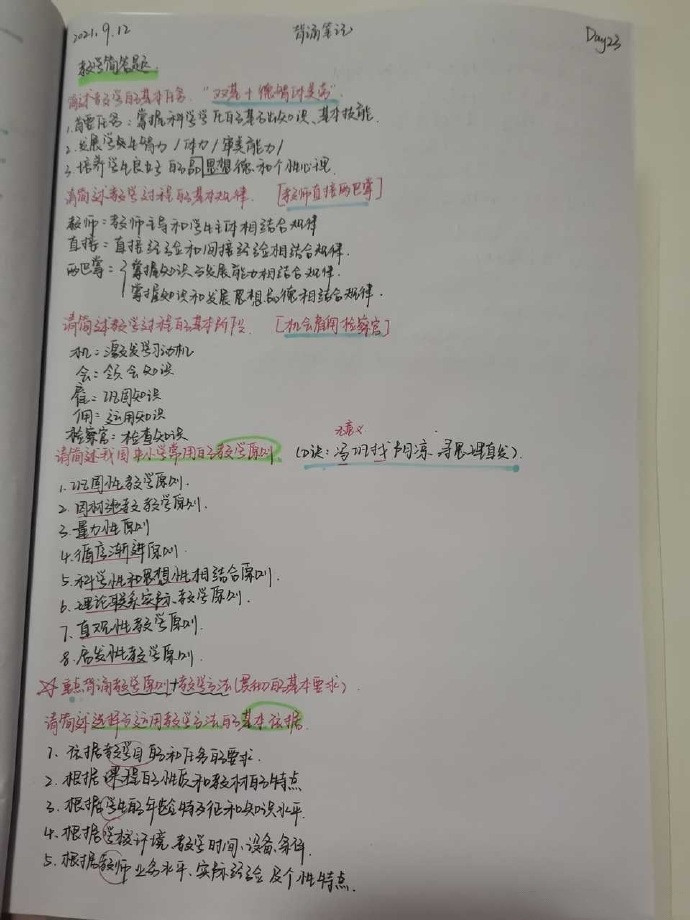 2021.9.12 背诵笔记 Day23
教学简答题:
简述教学的基本任务. "双基+德能讨美高".
1.首要任务:掌握科学文化的基础知识、基本技能.
2.发展学生智力/体力/审美能力/
3.培养学生良好的品思想德和个性心理.
请简述教学过程的基本规律. [教师直接两巴掌]
教师:教师主导和学生主体相结合规律
直接:直接经验和间接经验相结合规律.
两巴掌:掌握知识与发展能力相结合规律.
掌握知识和发展思想品德相结合规律.
请简述教学过程的基本阶段. [机会雇佣检察官]
机:激发学习动机
会:领会知识
雇:巩固知识
佣:运用知识
检察官:检查知识
请简述我国中小学常用的教学原则 (口诀:
1.巩固性教学原则.
2.因材施教教学原则.
3.量力性原则
4.循序渐进原则.
5.科学性和思想性相结合原则.
6.理论联系实际教学原则.
7.直观性教学原则.
8.启发性教学原则.
重点背诵教学原则+教学方法(贯彻的基本要求).
请简述选择与运用教学方法的基本依据.
1.依据教学目的和任务的要求.
2.根据课程的性质和教材的特点
3.根据学生的年龄特征和知识水平.
4.根据学校环境.教学时间、设备、条件.
5.根据教师业务水平、实际经验及个性特点.